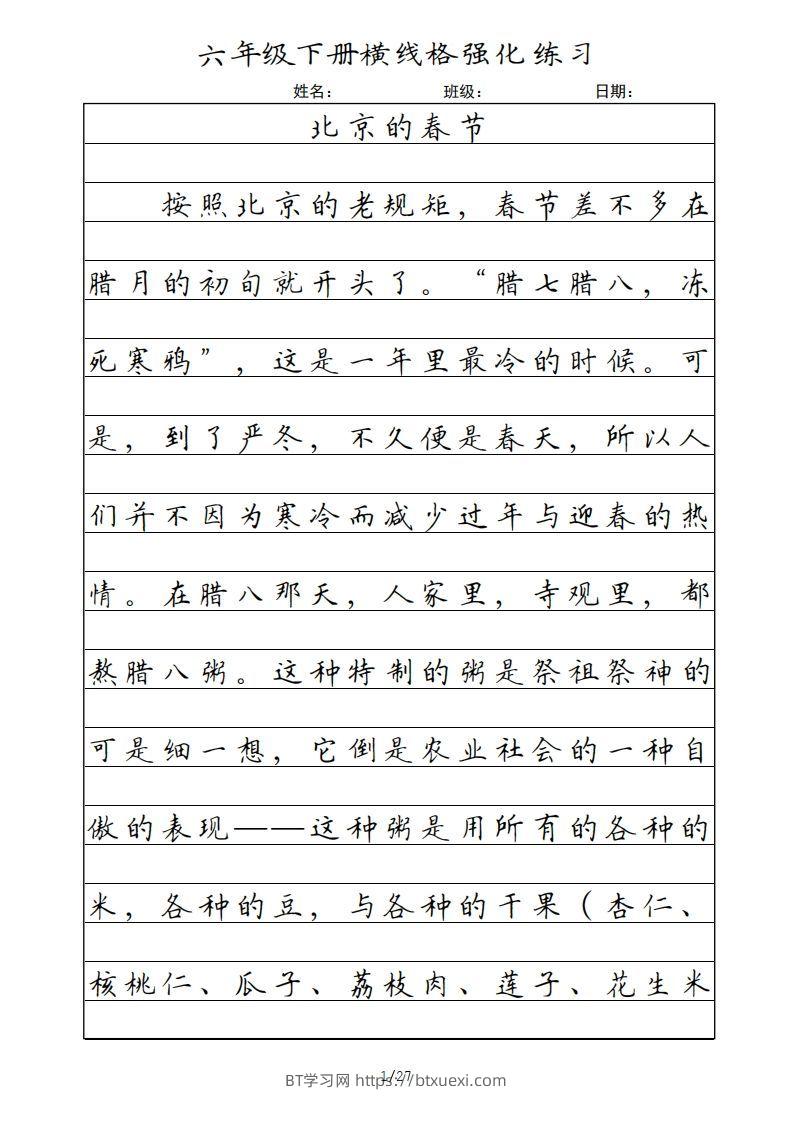 六年级下册横线格强化练习
姓名： 班级： 日期：
北京的春节
按照北京的老规矩，春节差不多在
腊月的初旬就开头了。“腊七腊八，冻
死寒鸦”，这是一年里最冷的时候。可
是，到了严冬，不久便是春天，所以人
们并不因为寒冷而减少过年与迎春的热
情。在腊八那天，人家里，寺观里，都
熬腊八粥。这种特制的粥是祭祖祭神的
可是细一想，它倒是农业社会的一种自
傲的表现——这种粥是用所有的各种的
米，各种的豆，与各种的干果（杏仁、
核桃仁、瓜子、荔枝肉、莲子、花生米
1/27
BT学习网 https://btxuexi.com